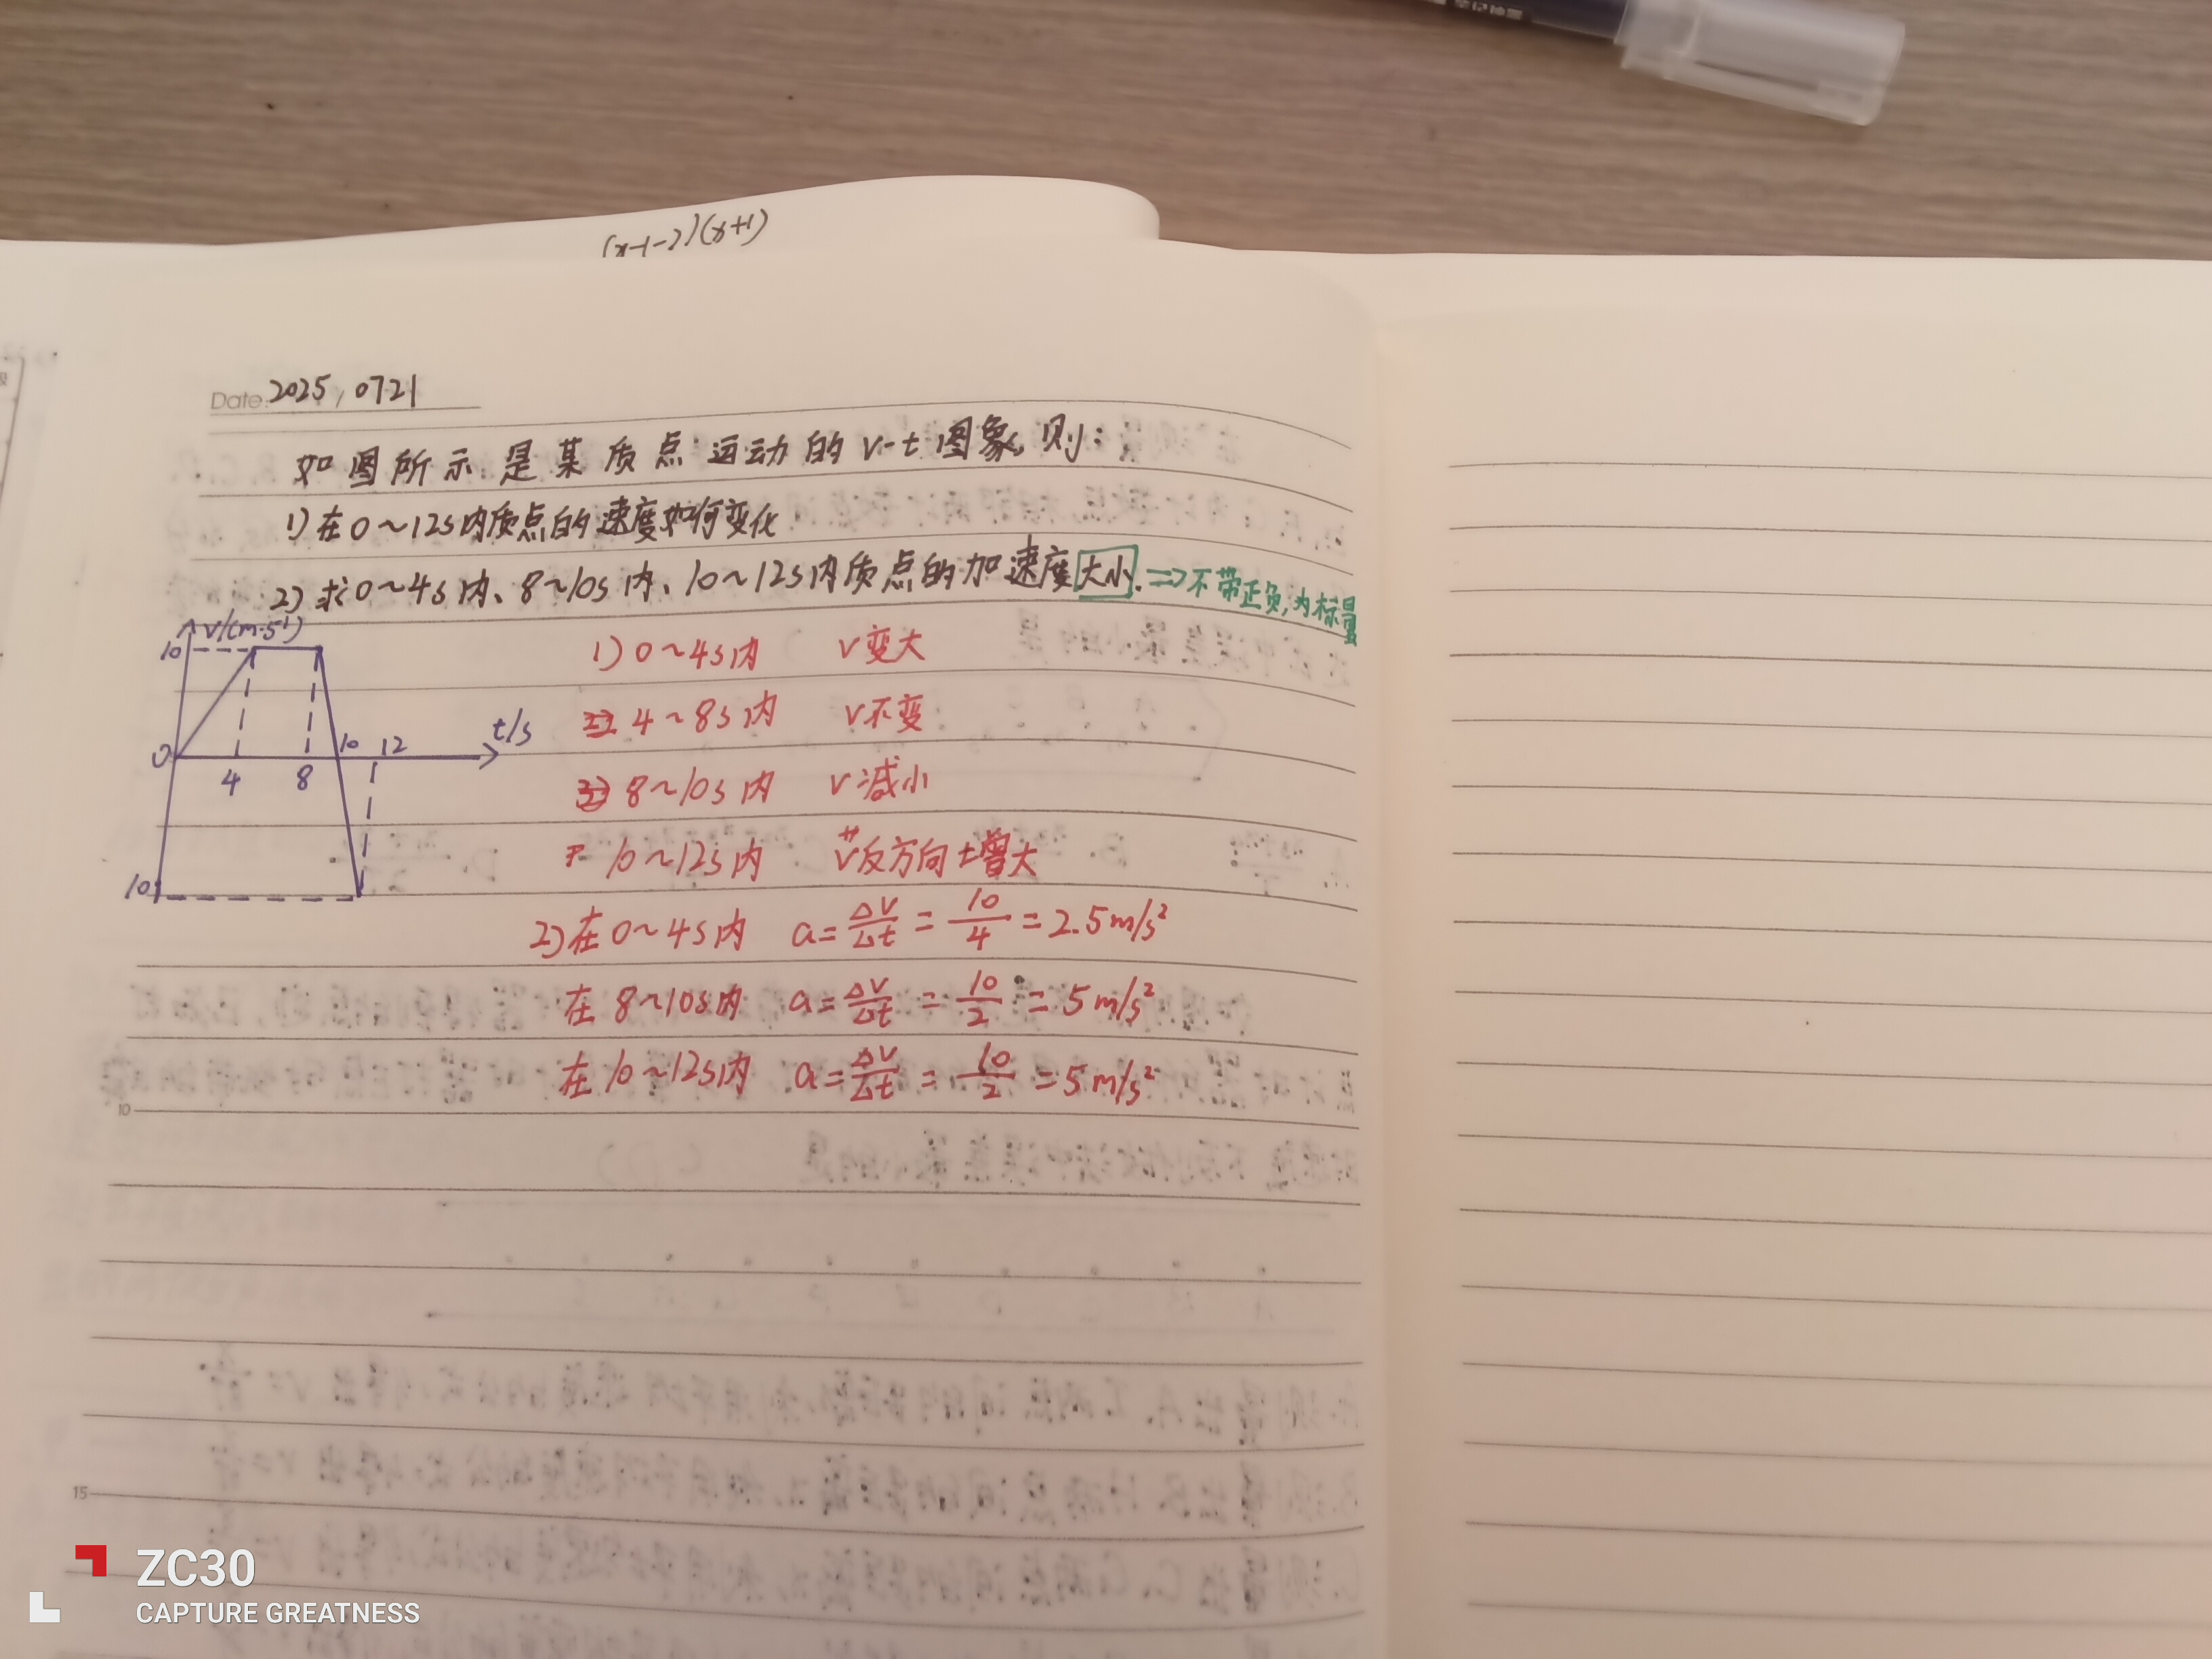 (x-1-2)(x+1)
Date: 2025, 0721
如图所示是某质点运动的v-t图象,则:
1)在0~12s内质点的速度如何变化
2)求0~4s内、8~10s内、10~12s内质点的加速度大小. => 不带正负,为标量
v/(m·s⁻¹)
10
0
4
8
10
12
t/s
10
1) 0~4s内 v变大
4~8s内 v不变
8~10s内 v减小
10~12s内 v反方向增大
2)在0~4s内 a=Δv/Δt=10/4=2.5m/s²
在8~10s内 a=Δv/Δt=10/2=5m/s²
在10~12s内 a=Δv/Δt=10/2=5m/s²
10
15
ZC30
CAPTURE GREATNESS